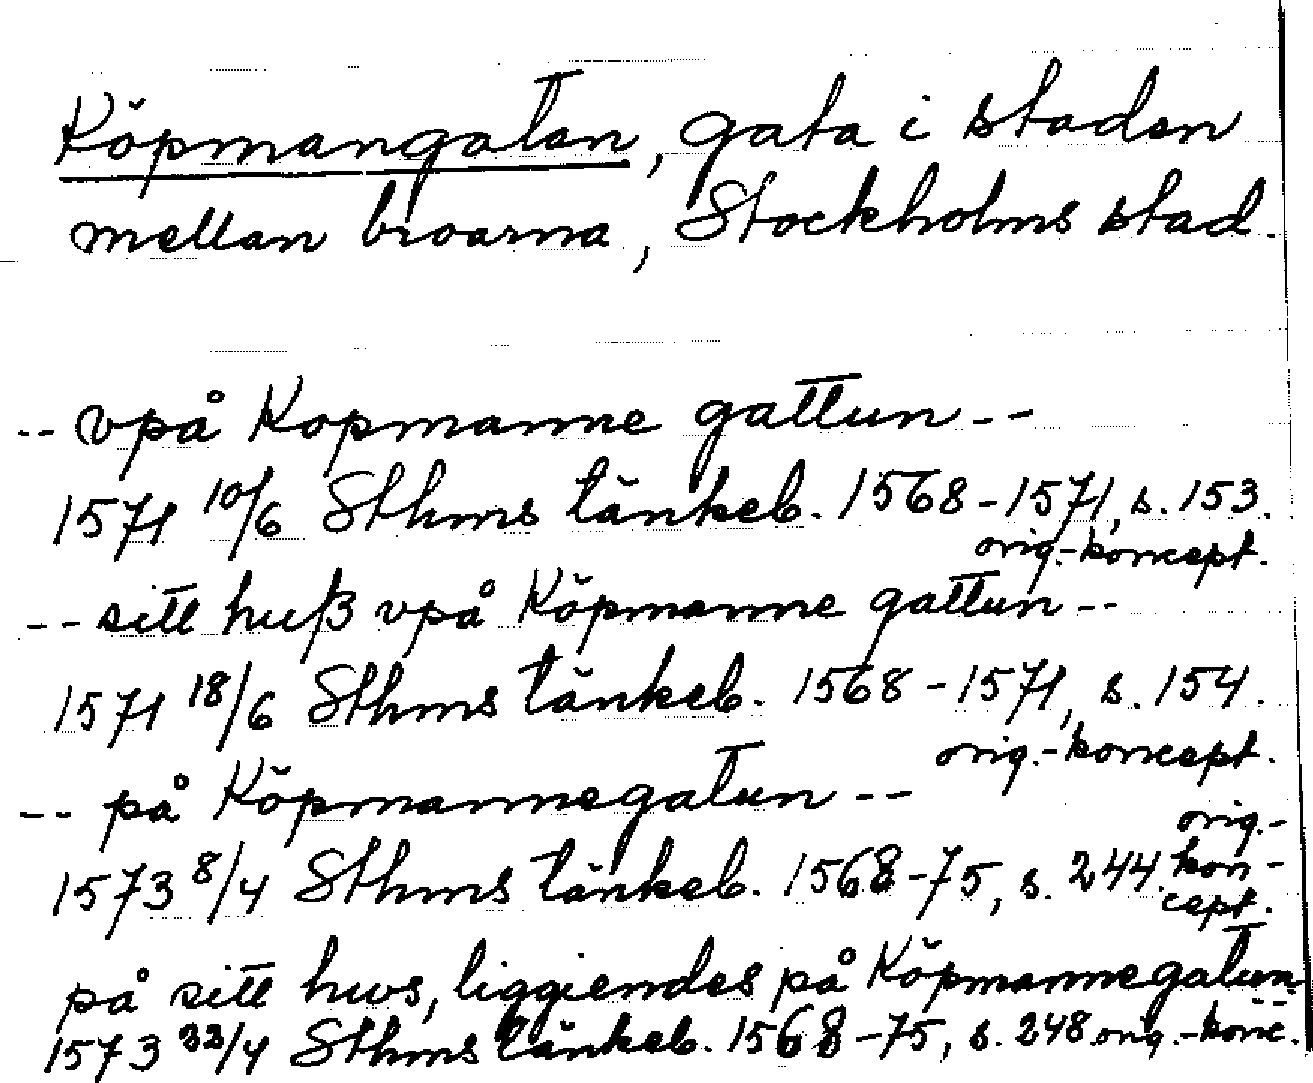 Köpmangatan, gata i staden
mellan broarna, Stockholms stad.
-- vpå Kopmanne gattun --
1571 10/6 Sthms tänkeb. 1568-1571, s. 153.
orig.-koncept.
-- sitt huß vpå Köpmanne gattun --
1571 18/6 Sthms tänkeb. 1568-1571, s. 154.
orig.-koncept.
-- på Köpmannegatun --
1573 8/4 Sthms tänkeb. 1568-75, s. 244. orig.-
kon-
cept.
på sitt hws, liggiendes på Köpmannegatun
1573 22/4 Sthms tänkeb. 1568-75, s. 248. orig.-konc.